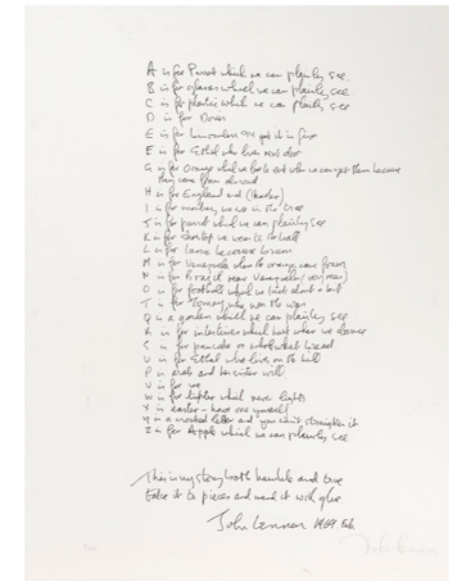 A is for Parrot which we can plainly see
B is for glasses which we can plainly see
C is for plastic which we can plainly see
D is for Doris
E is for binoculars I'll get it in five
F is for Ethel who lives next door
G is for Orange which we love to eat when we can get them because
they come from abroad
H is for England and (Heather)
I is for monkey we see in the tree
J is for parrot which we can plainly see
K is for shoetop we wear to the ball
L is for Land because brown
M is for Venezuela where the oranges come from
N is for Brazil near Venezuela (very near)
O is for football which we kick about a bit
T is for Tommy who won the war
Q is a garden which we can plainly see
R is for intestines which hurt when we dance
S is for pancake or whole wheat bread
U is for Ethel who lives on the hill
P is arab and her sister will
V is for me
W is for lighter which never lights
X is easter - have one yourself
Y is a crooked letter and you can't straighten it
Z is for Apple which we can plainly see
This is my story both humble and true
take it to pieces and mend it with glue
John Lennon 1969 Feb.